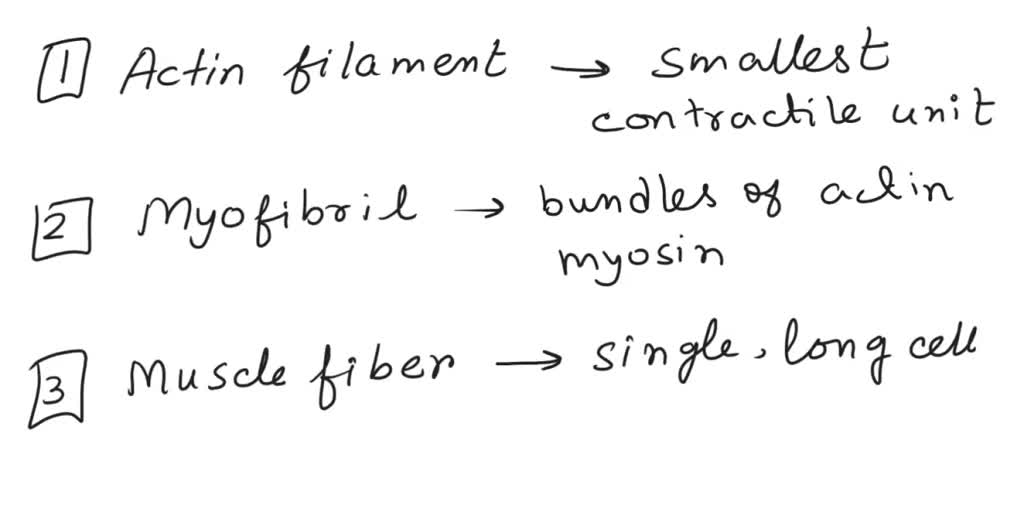 1 Actin filament → smallest
contractile unit
2 Myofibril → bundles of actin
myosin
3 Muscle fiber → single, long cell